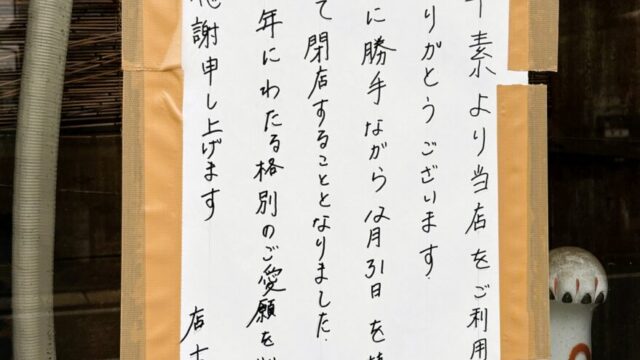 素より当店をご利用
りがとうございます
に勝手ながら12月31日を
て閉店することとなりました
年にわたる格別のご愛願を
謝申し上げます
店